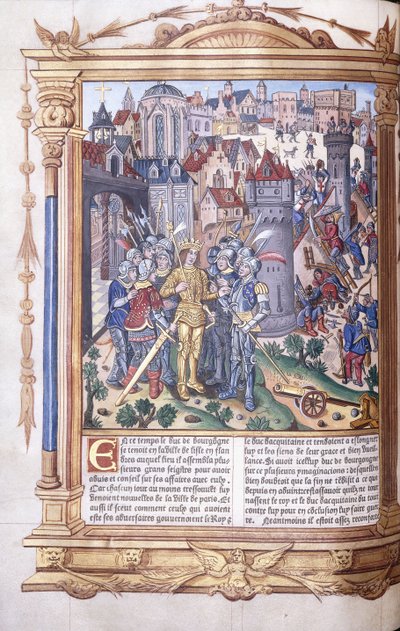 En ce temps le duc de bourgõgne
se tenoit en la ville de lisle en flan
dres auquel lieu il assembla plu
sieurs grans seigñrs pour avoir
advis et conseil sur ses affaires avec eulx.
Car chascun iour ou au moins tressouuẽt luy
venoient nouuelles de la ville de paris. Et
aussi il sceut comment ceulx qui avoient
esté ses aduersaires gouuernoiẽt le Roy &
le duc dacquitaine et tendoiẽt a eslongner
luy et les siens de leur grace et bien vueil
lance. Si auoit icelluy duc de bourgongne
sur ce plusieurs ymaginacions : desquelles
bien doubtoit que la fin ne
depuis en
nassent le roy et le duc dacquitaine du tout
contre luy pour en cõclusion luy faire guer
re. Neantmoins il estoit assez reconfor